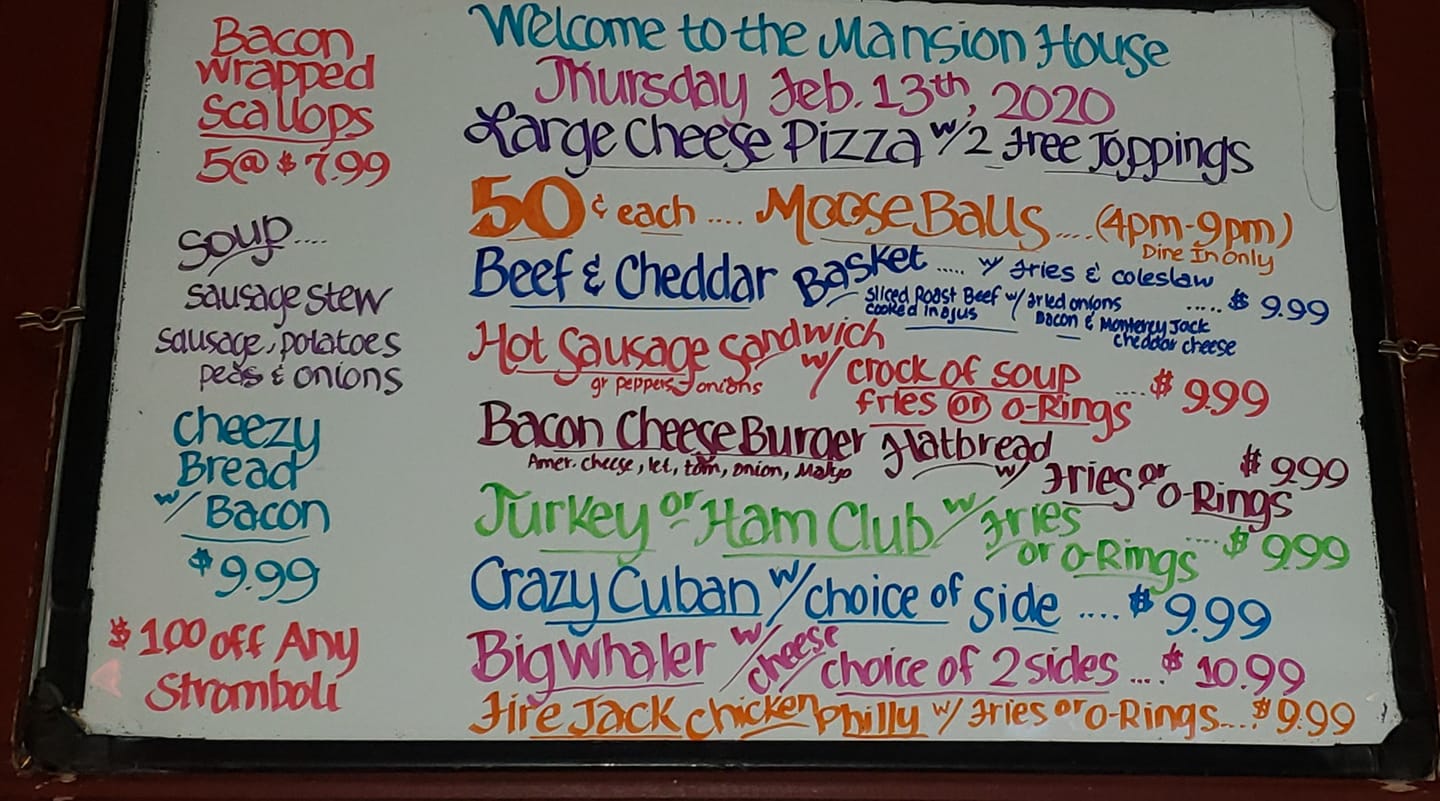 Bacon
wrapped
Scallops
5@ $7.99
Soup....
Sausage Stew
Sausage, potatoes
peas & onions
Cheezy
Bread
w/ Bacon
$9.99
$1.00 off Any
Stromboli
Welcome to the Mansion House
Thursday Feb. 13th, 2020
Large Cheese Pizza w/2 Free Toppings
50¢ each .... Moose Balls .... (4pm-9pm)
Dine In only
Beef & Cheddar Basket ..... w/ Fries & coleslaw
Sliced Roast Beef w/ fried onions ..... $9.99
cooked in ajus Bacon & Monterey Jack
cheddar cheese
Hot Sausage Sandwich
gr peppers, onions w/ crock of soup .... $9.99
fries or O-Rings
Bacon Cheese Burger Flatbread $9.99
Amer. cheese, let, tom, onion, Mayo w/ Fries or O-Rings
Turkey or Ham Club w/ Fries
or O-Rings .... $9.99
Crazy Cuban w/ choice of side .... $9.99
Big Whaler w/ cheese choice of 2 sides .... $10.99
Fire Jack Chicken Philly w/ Fries or O-Rings.... $9.99